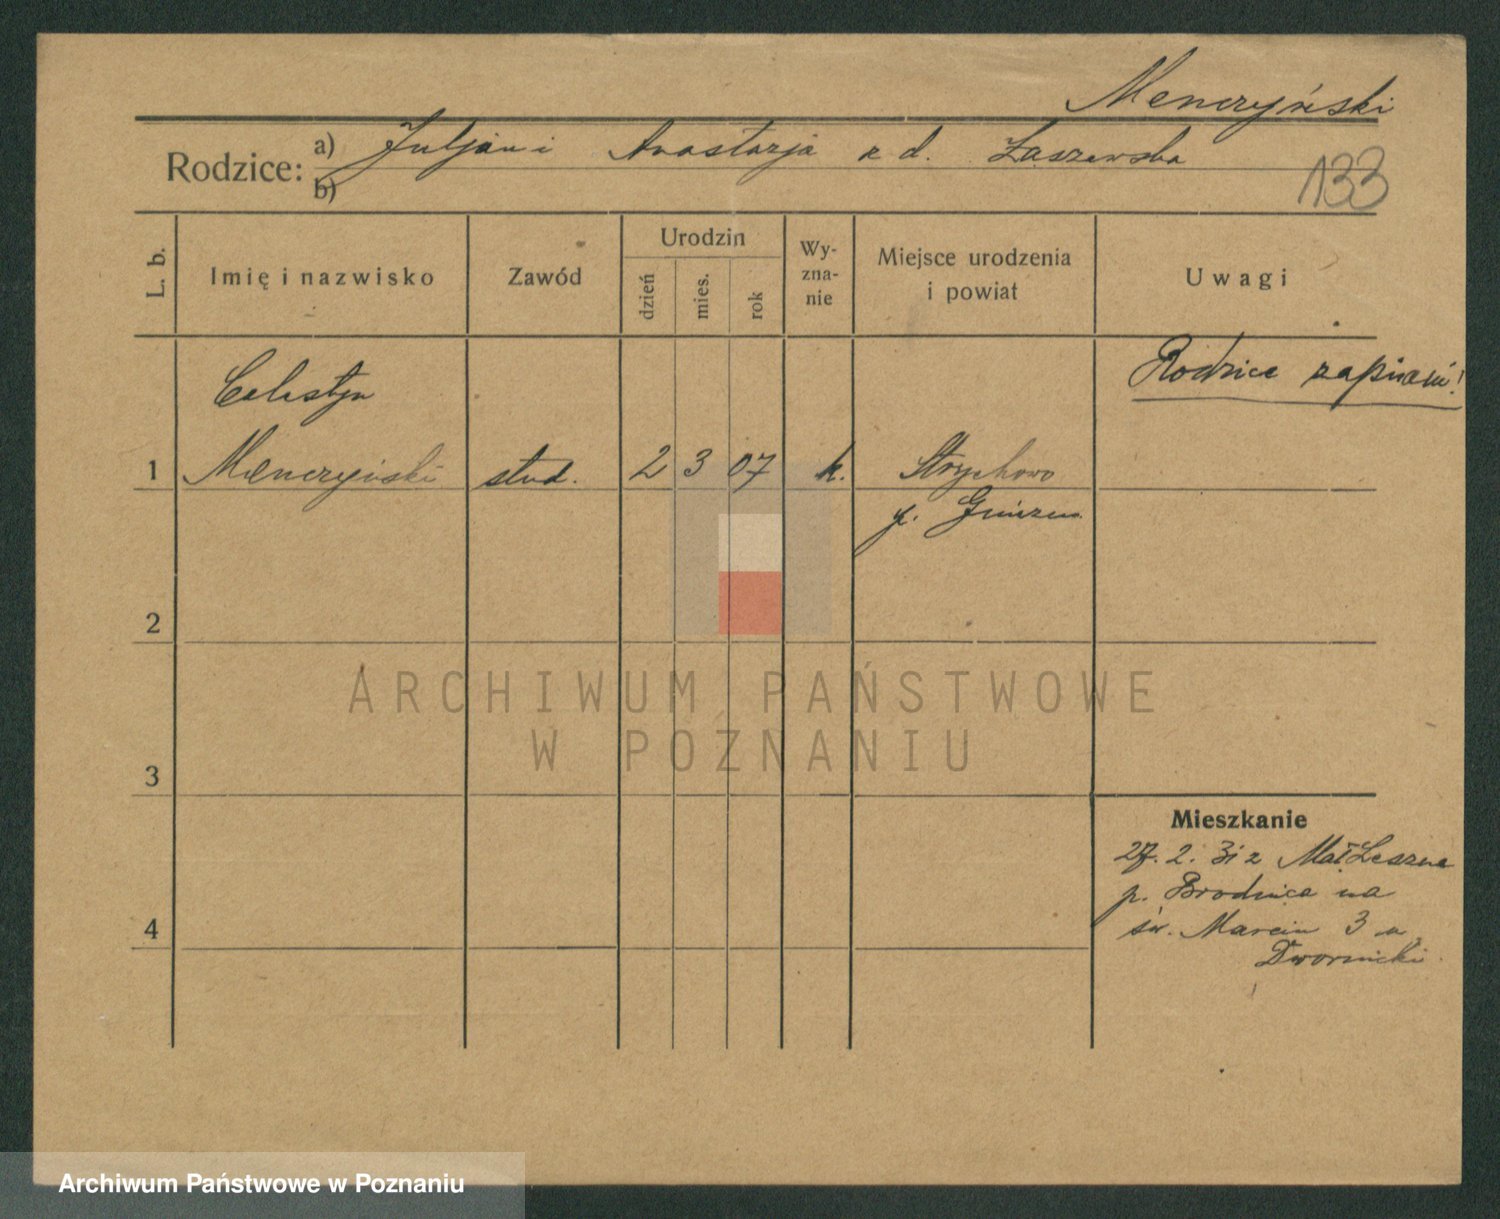 Menczyński
Rodzice: a) Juljan i Anastazja z d. Łaszewska
b)
133
L. b.
Imię i nazwisko
Zawód
Urodzin
dzień
mies.
rok
Wy-
zna-
nie
Miejsce urodzenia
i powiat
Uwagi
Rodzice zapisani!
Celestyn
1 Menczyński stud. 2 3 07 k.
p. Gniezno
2
ARCHIWUM PAŃSTWOWE
W POZNANIU
3
Mieszkanie
27. 2. 31 z Mał Leszna
p. Brodnica na
św. Marcin 3 u
Dwornicki
4
Archiwum Państwowe w Poznaniu